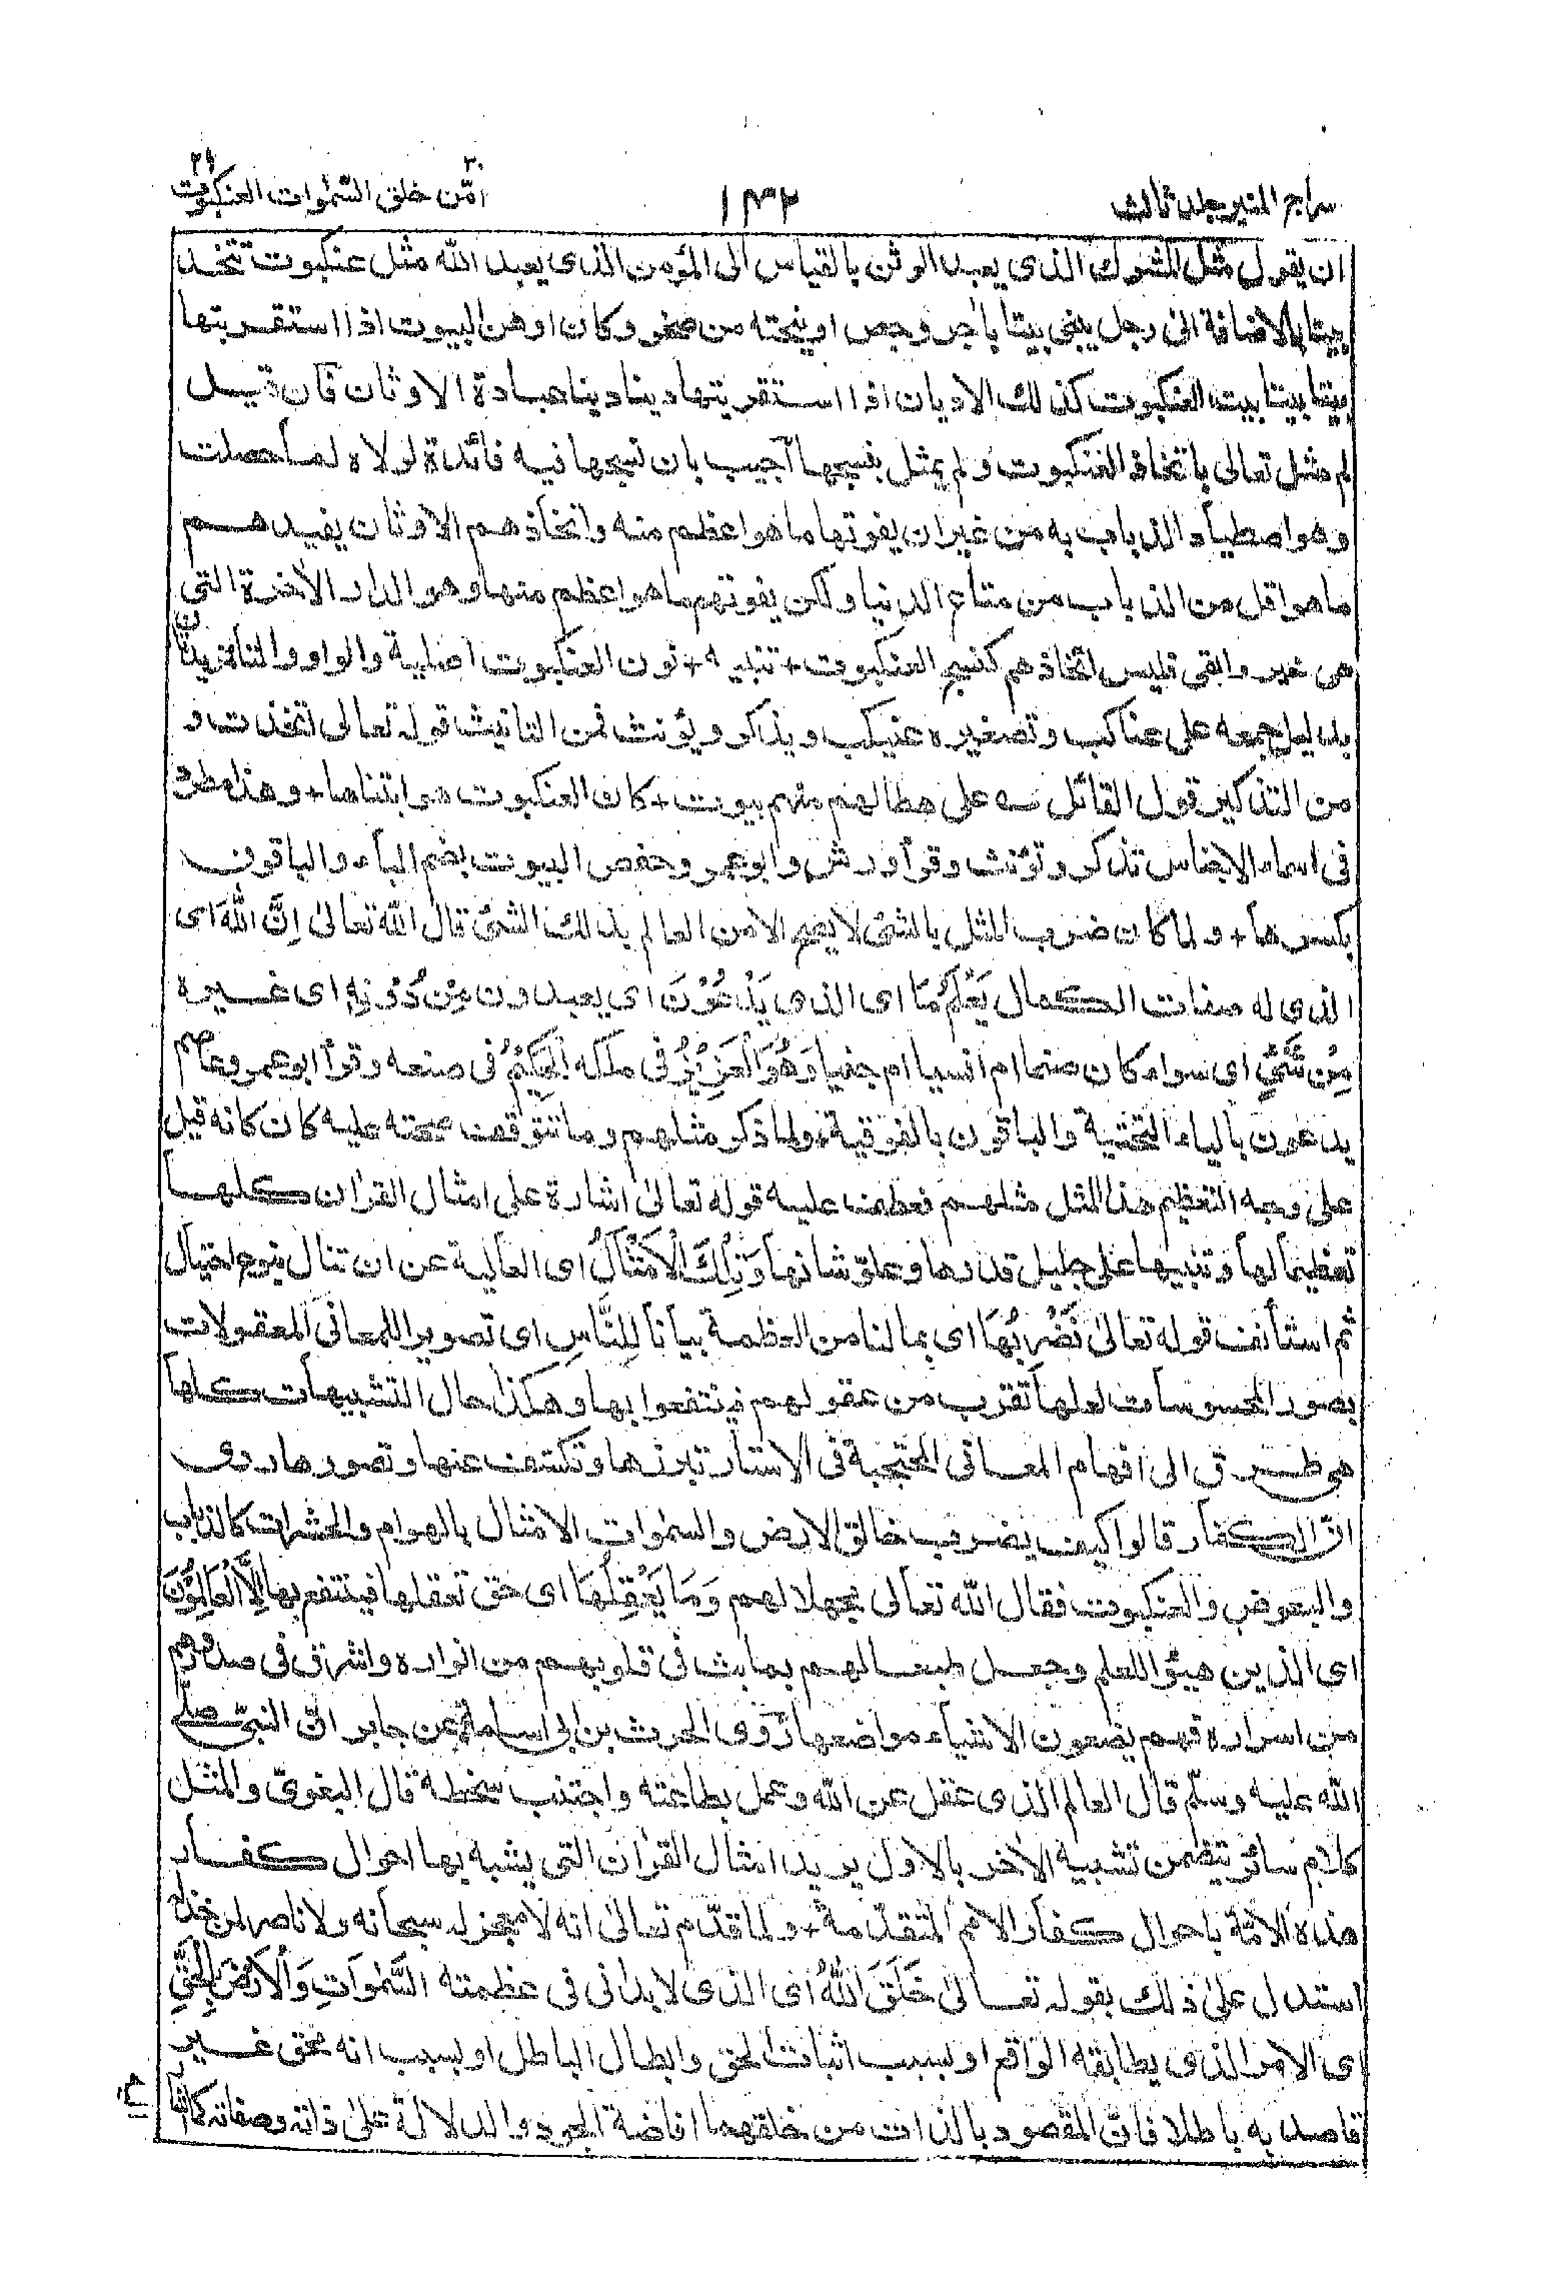 سراج المنير جلد ثالث
١٣٢
امّن خلق السّمٰوات ٢٠ العنكبوت ٢٩
ان يقول مثل المشرك الذى يعبد الوثن بالقياس الى المؤمن الذى يعبد الله مثل عنكبوت تتخذ
بيتا بالاضافة الى رجل يبنى بيتا باٰجر وجص او ينحته من صخر وكان اوهن البيوت اذا استقريتها
بيتا بيتا بيت العنكبوت كذلك الاديان اذا استقريتها دينا دينا عبادة الاوثان فان قيل
لم مثل تعالى باتخاذ العنكبوت ولم يمثل بنسجها اجيب بان نسجها فيه فائدة لولاه لما حصلت
وهو اصطياد الذباب به من غير ان يفوتها ما هو اعظم منه واتخاذهم الاوثان يفيدهم
ما هو اقل من الذباب من متاع الدنيا ولكن يفوتهم ما هو اعظم منها وهو الدار الاٰخرة التى
هى خير وابقى فليس اتخاذهم كنسج العنكبوت + تنبيه + نون العنكبوت اصلية والواو والتاء مزيدتان
بدليل جمعه على عناكب وتصغيره عنيكب ويذكر ويؤنث فمن التانيث قوله تعالى اتخذت و
من التذكير قول القائل ؎ على هطالهم منهم بيوت + كان العنكبوت هو ابتناها + وهذا مطرد
فى اسماء الاجناس تذكر وتؤنث وقرأ ورش وابو عمر وحفص البيوت بضم الباء والباقون
بكسرها + ولما كان ضرب المثل بالشئ لا يصح الا من العالم بذلك الشئ قال الله تعالىٰ اِنَّ اللهَ اى
الذى له صفات الكمال يَعْلَمُ مَا اى الذى يَدْعُوْنَ اى يعبدون مِنْ دُوْنِهٖ اى غيره
مِنْ شَيْءٍ اى سواء كان صنما ام انسيا ام جنيا وَهُوَ الْعَزِيْزُ فى ملكه الْحَكِيْمُ فى صنعه وقرأ ابو عمر وعاصم
يدعون بالياء التحتية والباقون بالفوقية + ولما ذكر مثلهم وما تتوقف صحته عليه كان كانه قيل
على وجه التعظيم هذا المثل مثلهم فعطف عليه قوله تعالىٰ اشارة على امثال القراٰن كلها
تعظيما لها وتنبيها على جليل قدرها وعلوّ شانها وَتِلْكَ الْاَمْثَالُ اى العالية عن ان تنال بنوع احتيال
ثم استأنف قوله تعالىٰ نَضْرِبُهَا اى بما لنا من العظمة بيانا لِلنَّاسِ اى تصويرا للمعانى المعقولات
بصور المحسوسات لعلها تقرب من عقولهم فينتفعوا بها وهكذا حال التشبيهات كلها
هى طرق الى افهام المعانى المحتجبة فى الاستار تبرزها وتكشف عنها وتصورها روى
انّ الكفار قالوا كيف يضرب خالق الارض والسمٰوات الامثال بالهوام والحشرات كالذباب
والبعوض والعنكبوت فقال الله تعالى مجهلا لهم وَمَا يَعْقِلُهَا اى حق تعقلها فينتفع بها اِلَّا الْعَالِمُوْنَ
اى الذين هيؤا للعلم وجعل طبعا لهم بما بث فى قلوبهم من انواره واشرق فى صدورهم
من اسراره فهم يضعون الاشياء مواضعها رَوى الحرث بن ابى اسامة عن جابر انّ النبىّ صلّى
الله عليه وسلّم قال العالم الذى عقل عن الله وعمل بطاعته واجتنب سخطه قال البغوىّ والمثل
كلام سائر يتضمن تشبيه الاٰخر بالاول يريد امثال القراٰن التى يشبه بها احوال كفار
هذه الامّة باحوال كفار الامم المتقدّمة + ولما قدّم تعالىٰ انه لا معجز له سبحانه ولا ناصر لمن خذله
استدل علىٰ ذلك بقوله تعالىٰ خَلَقَ اللهُ اى الذى لا يدانى فى عظمته السَّمٰوَاتِ وَالْاَرْضَ بِالْحَقِّ
اى الامر الذى يطابقه الواقع او بسبب اثبات الحق وابطال الباطل او بسبب انه محق غير
قاصد به باطلا فانّ المقصود بالذات من خلقهما افاضة الجود والدلالة علىٰ ذاته وصفاته كما اشار